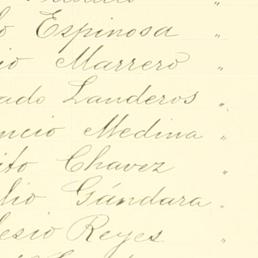 o Espinosa "
io Marrero "
ado Landeros "
encio Medina "
ito Chavez "
lio Gándara "
lesio Reyes "